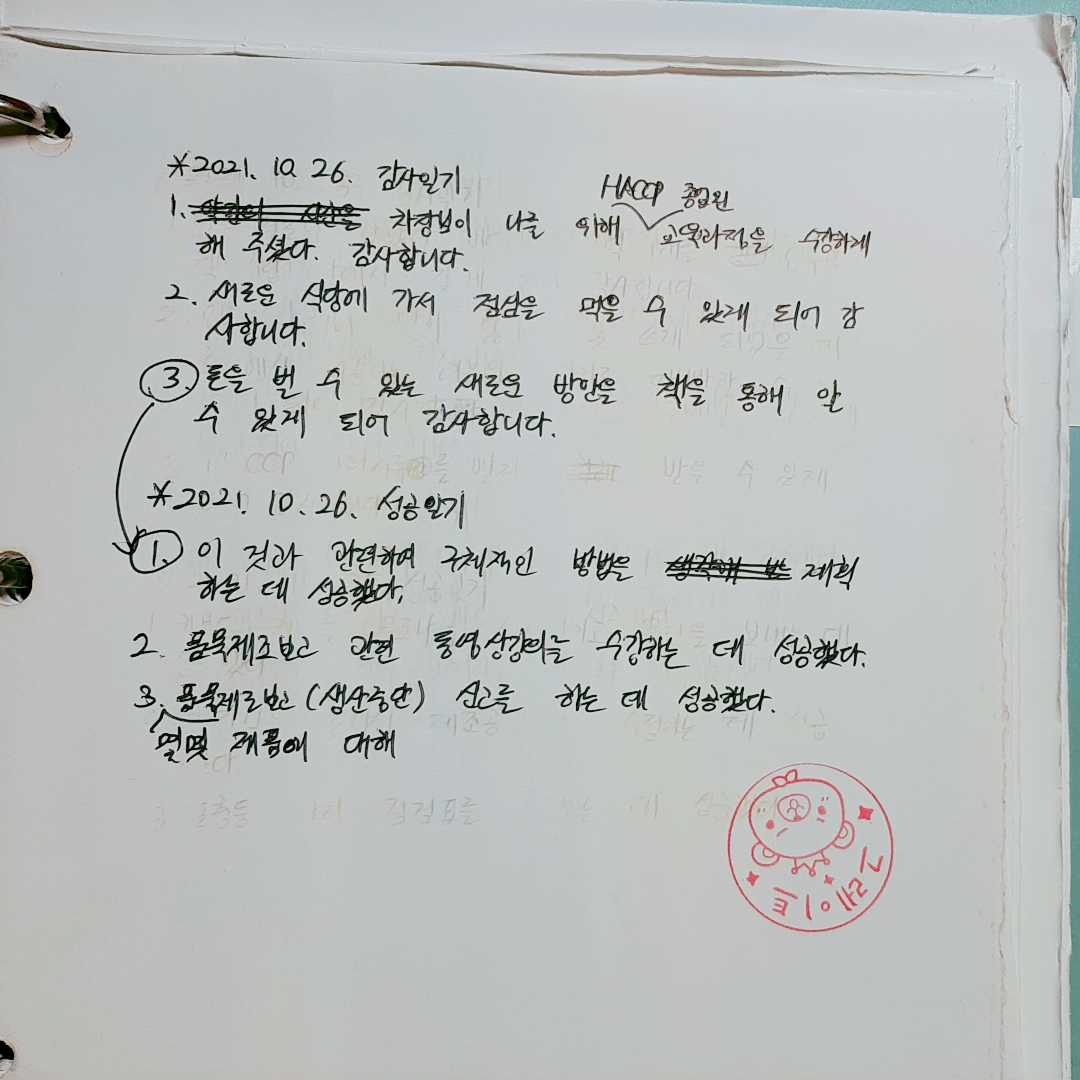 *2021. 10. 26. 감사일기
HACCP 종업원
1. 차장님이 나를 위해 교육과정을 수강하게
해 주셨다. 감사합니다.
2. 새로운 식당에 가서 점심을 먹을 수 있게 되어 감
사합니다.
③ 돈을 벌 수 있는 새로운 방안을 책을 통해 알
수 있게 되어 감사합니다.
*2021. 10. 26. 성공일기
①. 이 것과 관련하여 구체적인 방법을 계획
하는 데 성공했다.
2. 품목제조보고 관련 동영상강의를 수강하는 데 성공했다.
3. 품목제조보고(생산중단) 신고를 하는 데 성공했다.
몇몇 제품에 대해
그레이트